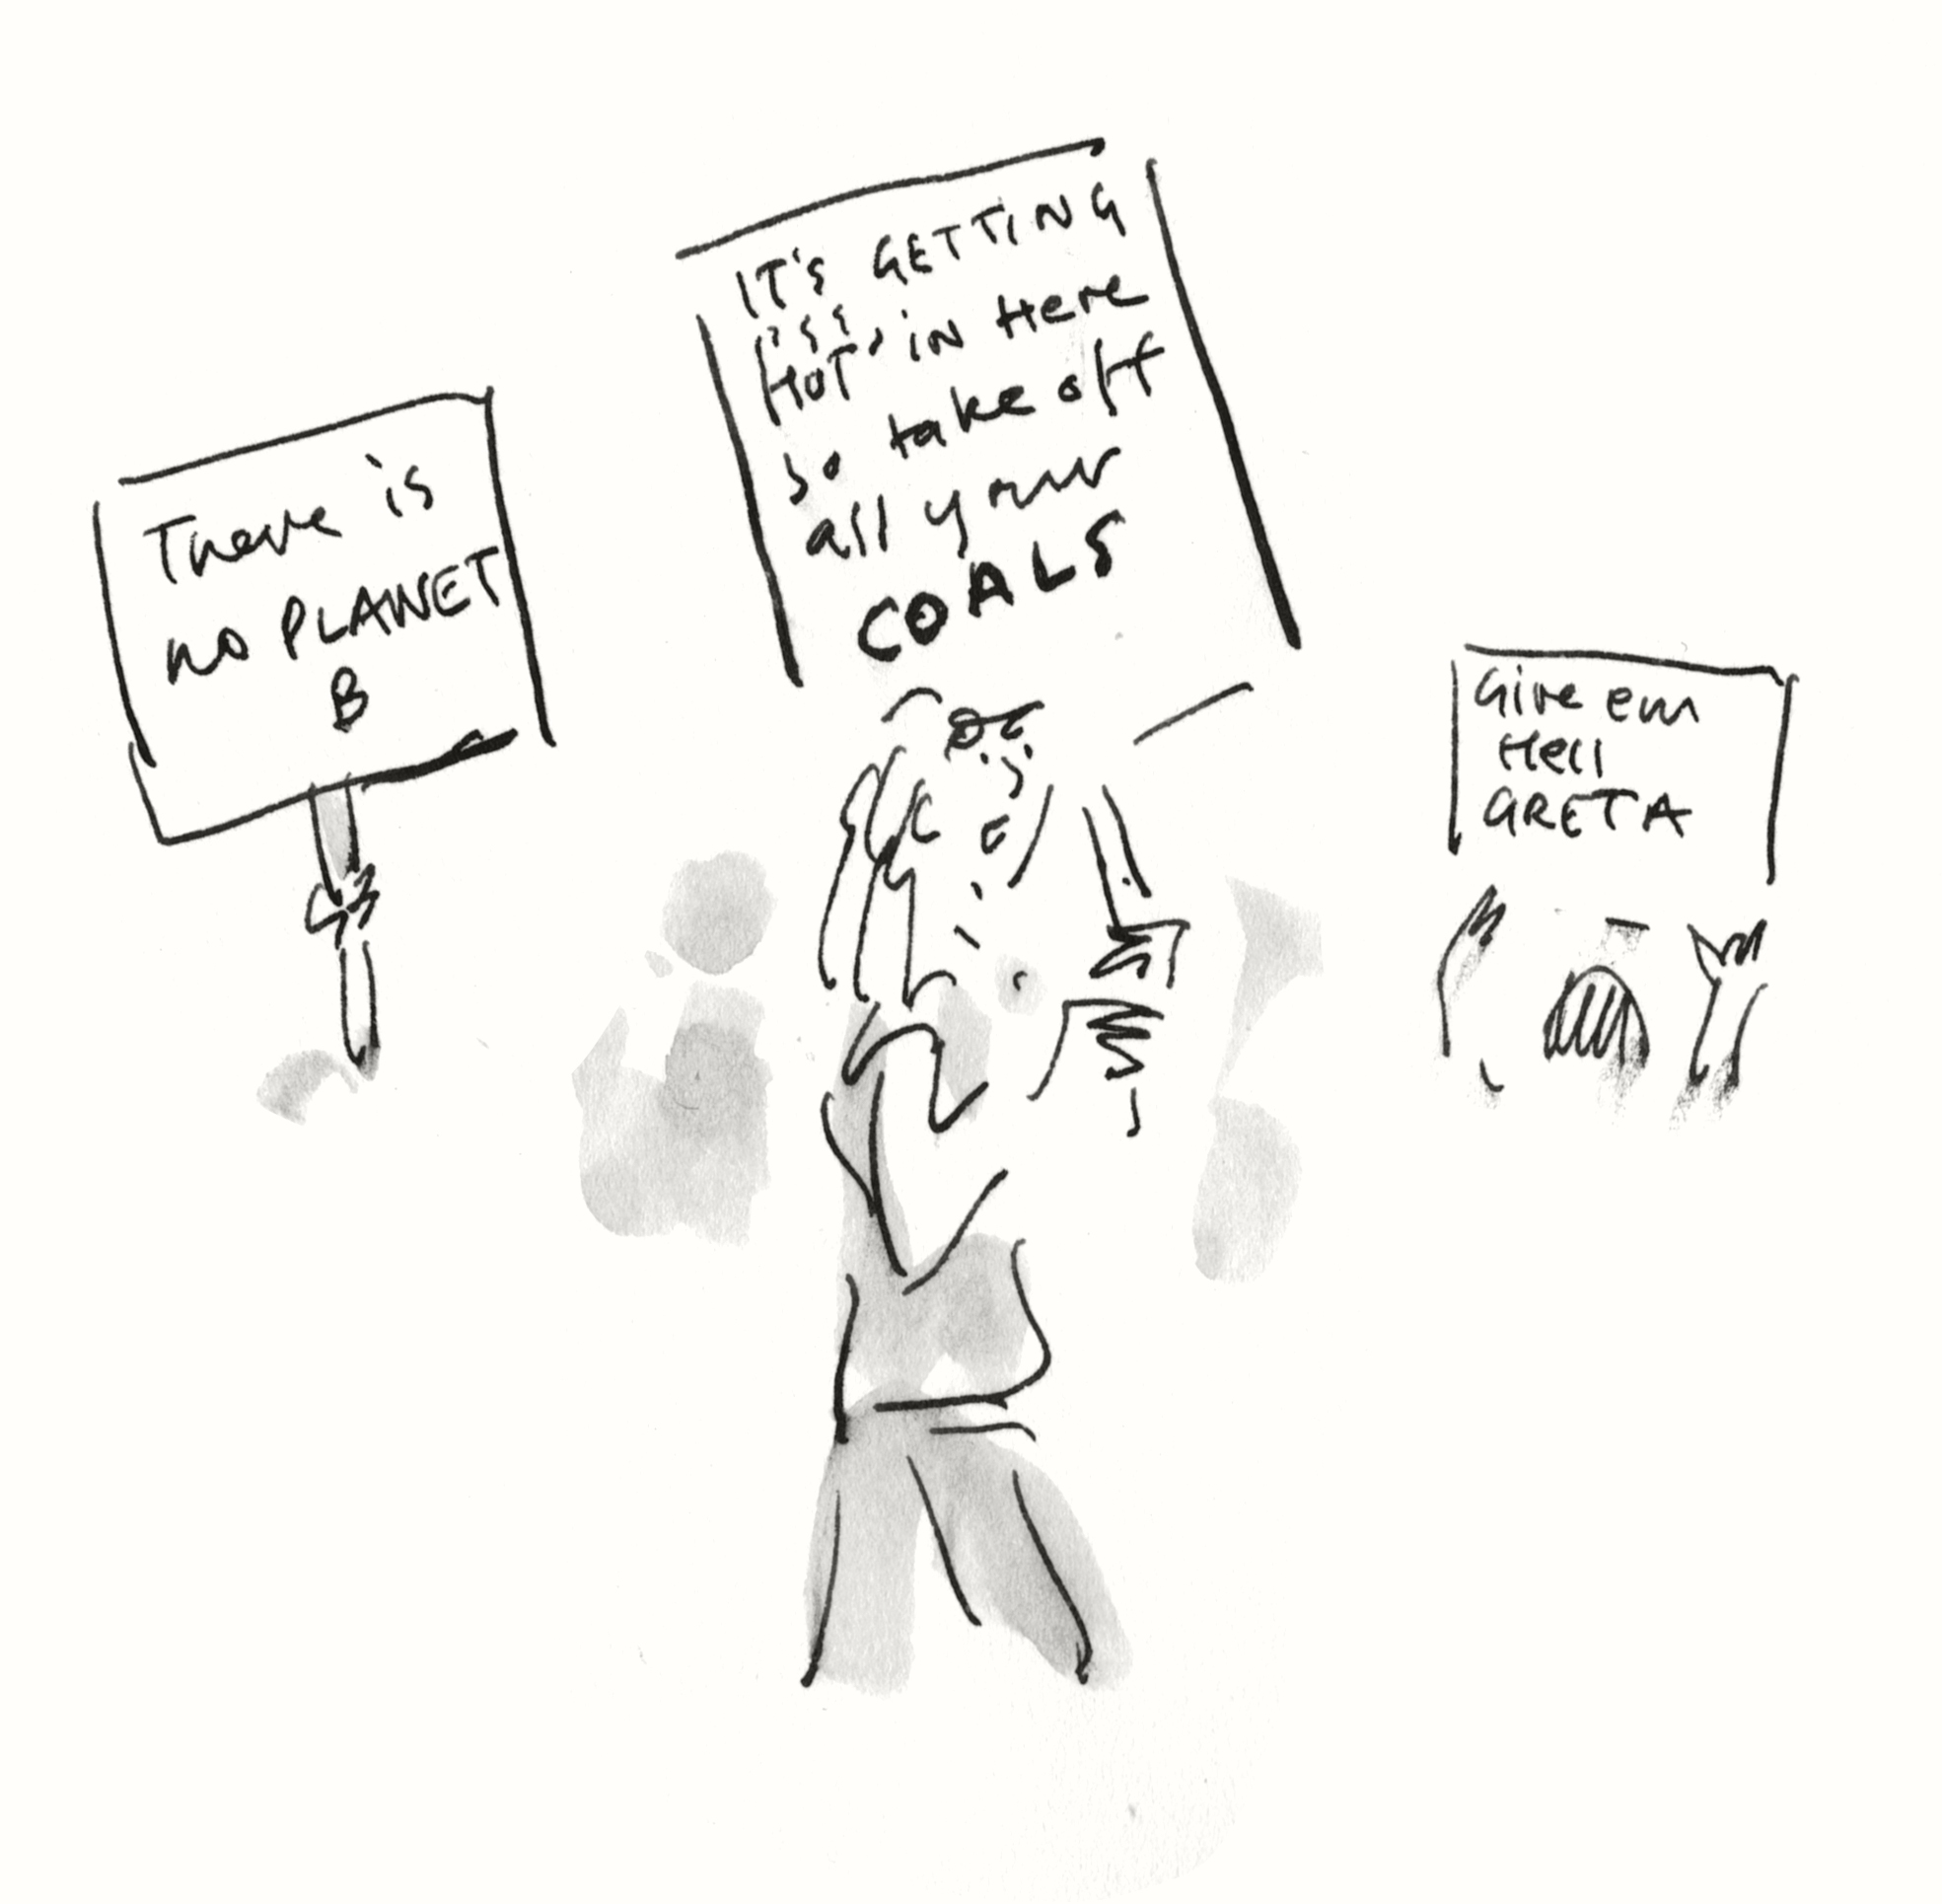 There is
no PLANET
B
IT'S GETTING
HOT in Here
so take off
all your
COALS
Give em
Hell
GRETA